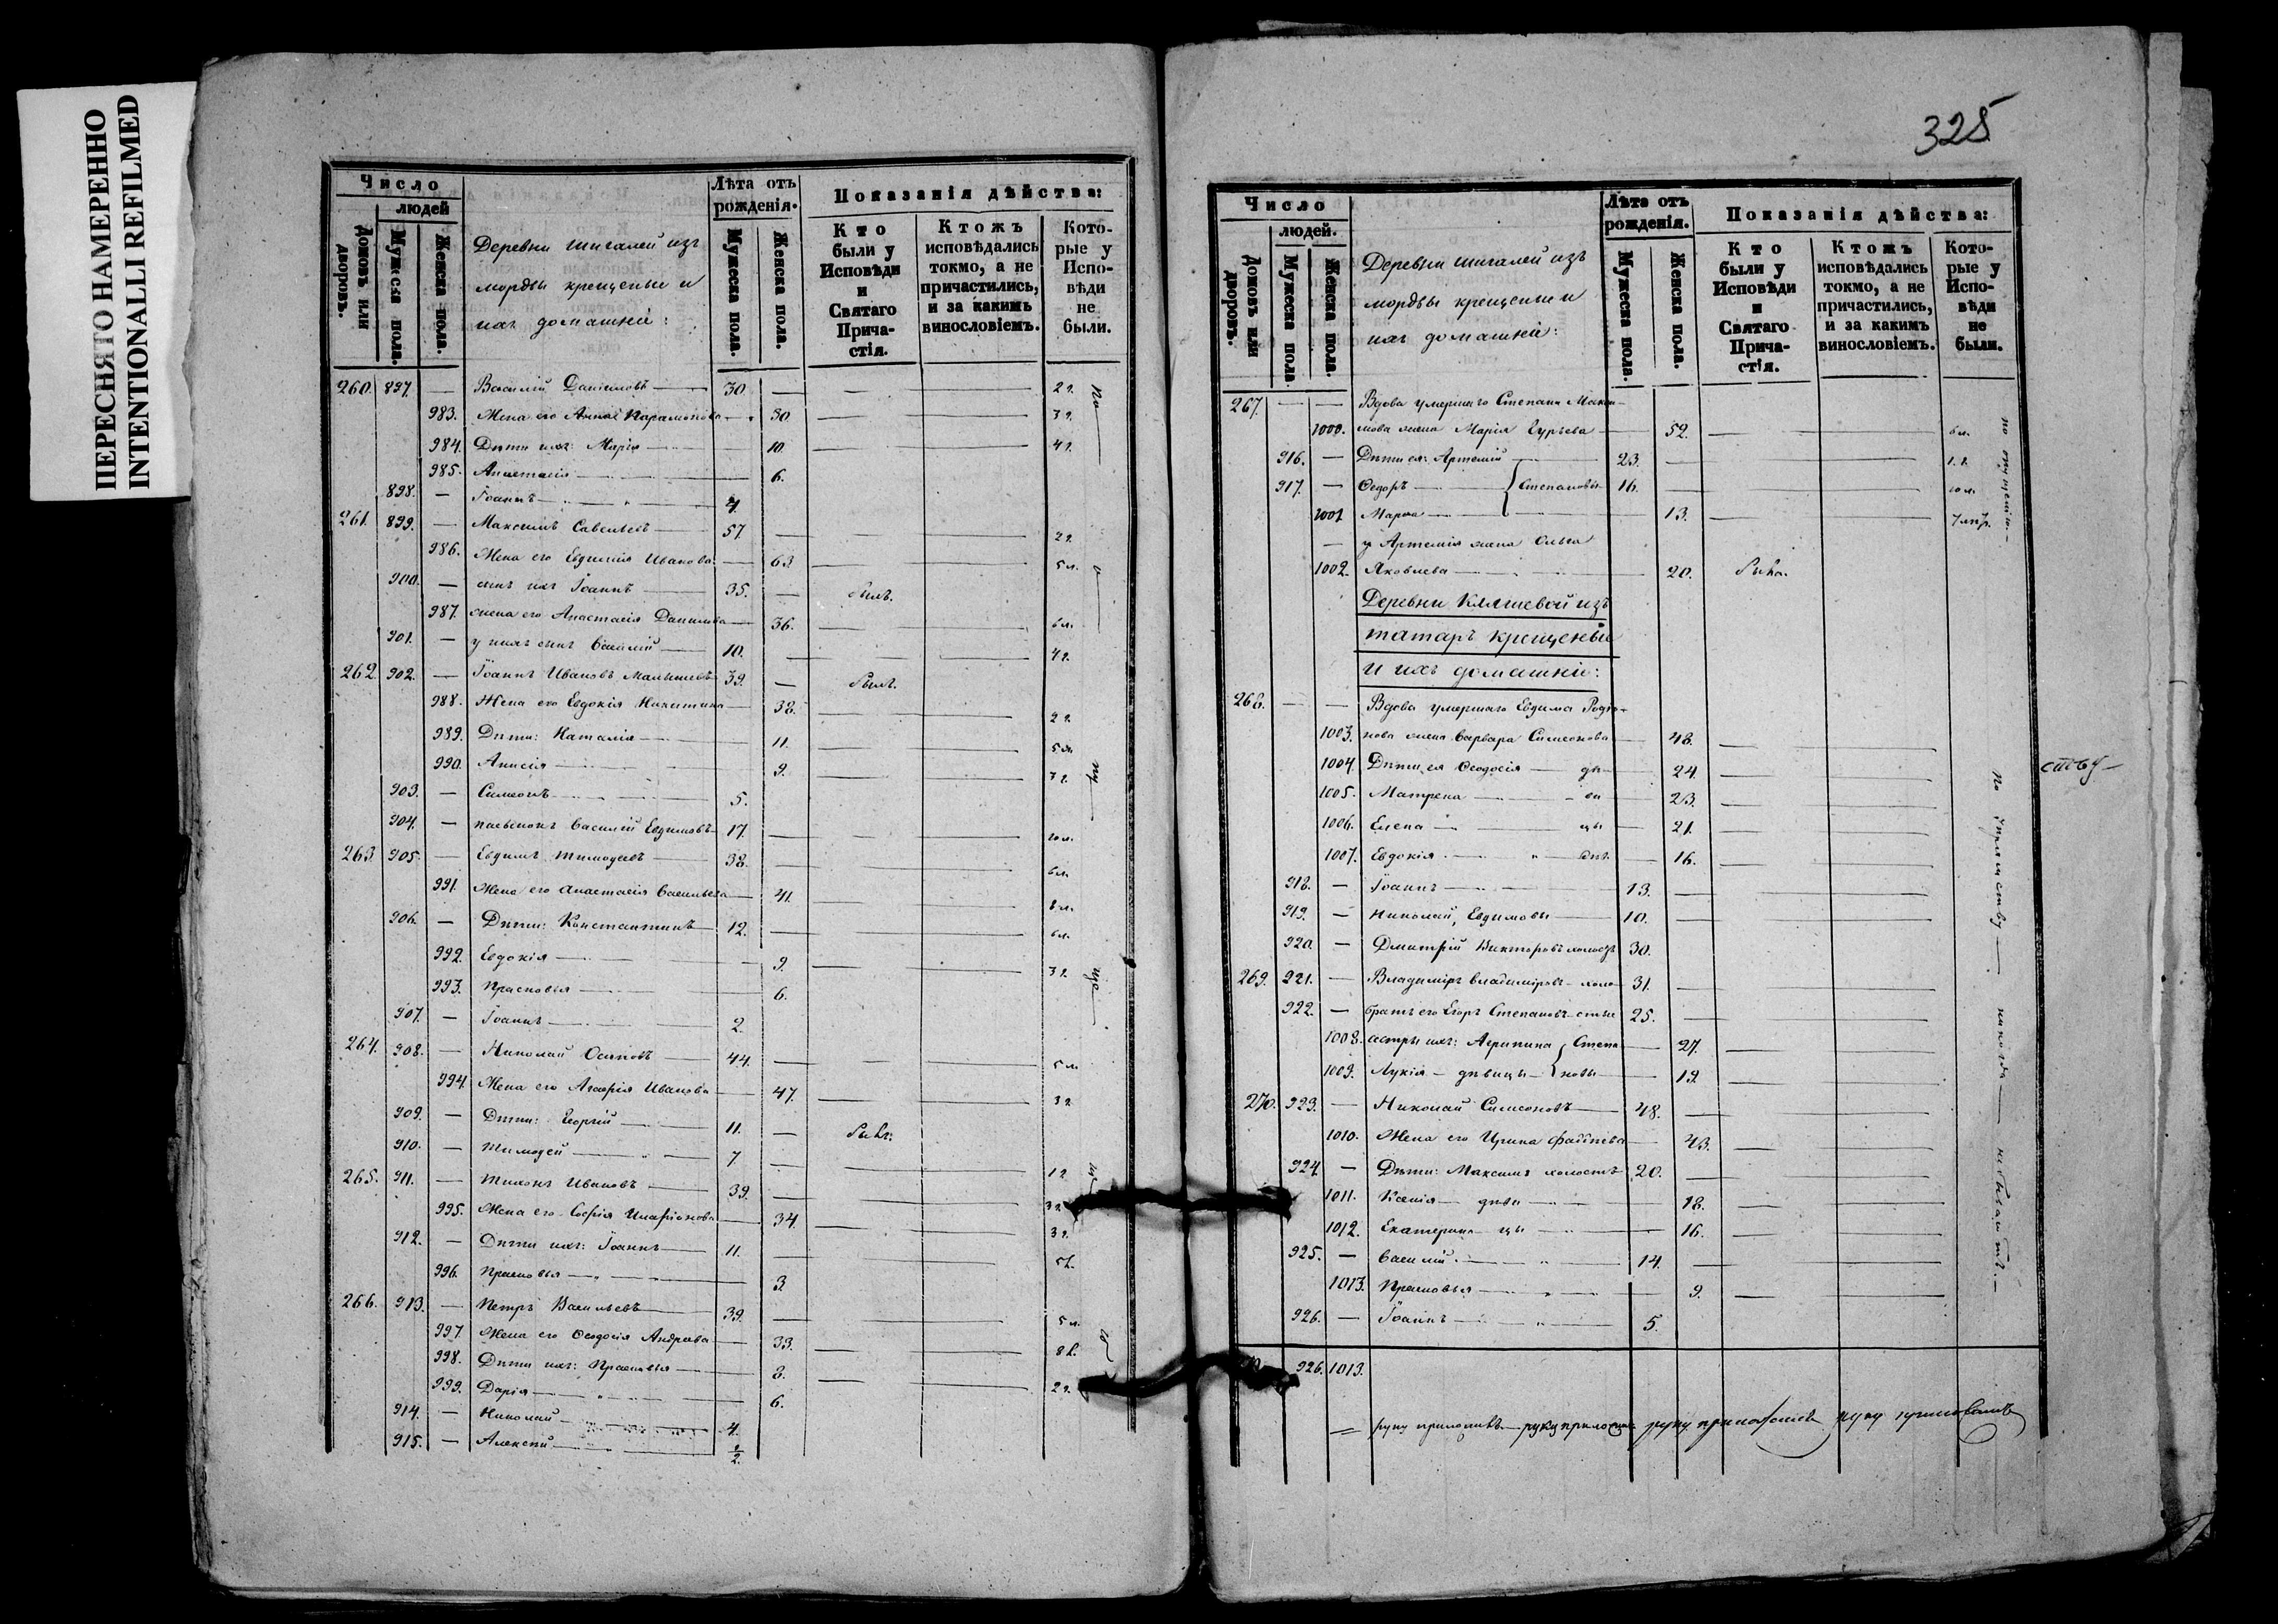 ПЕРЕСНЯТО НАМЕРЕННО
INTENTIONALLI REFILMED
Число
людей
Домовъ или дворовъ.
Мужеска пола.
Женска пола.
Деревни Шигалей изъ
мордвы крещеные и
ихъ домашніе:
Лѣта отъ рожденія.
Мужеска пола.
Женска пола.
Показанія дѣйства:
Кто были у Исповѣди и Святаго Прича-стія.
Ктожъ исповѣдались токмо, а не причастились, и за какимъ винословіемъ.
Кото-рые у Испо-вѣди не были.
260. 897. — Василій Даніиловъ — 30 — 2 г.
983. Жена его Анна Парамонова — 30. 3 г.
984. Дѣти ихъ: Марія — 10. 4 г.
985. Анастасія — 6.
898. — Іоаннъ — 4.
261. 899. — Максимъ Савельевъ — 57. — 2 г.
986. Жена его Евдокія Иванова — 63 5 л.
900. — сынъ ихъ Іоаннъ — 35. — былъ.
987. жена его Анастасія Данилова — 36. 6 л.
901. — у нихъ сынъ Василій — 10. — 4 г.
262. 902. — Іоаннъ Ивановъ Малышевъ 39. — былъ.
988. Жена его Евдокія Никитина — 38. 2 г.
989. Дѣти: Наталія — 11. 5 л.
990. Анисія — 9. 3 г.
903. — Симеонъ — 5.
904. — пасынокъ Василій Евдимовъ 17. — 10 л.
263. 905. — Евдимъ Тимоѳеевъ — 38. — 6 л.
991. Жена его Анастасія Васильева — 41. 8 л.
906. — Дѣти: Константинъ — 12. — 6 л.
992. Евдокія — 9. 3 г.
993. Прасковья — 6.
907. — Іоаннъ — 2.
264. 908. — Николай Осиповъ — 44. — 5 л.
994. Жена его Иванова — 47. 3 г.
909. — Дѣти: Георгій — 11. — былъ.
910. — Тимоѳей — 7. — 1 г.
265. 911. — Тихонъ Ивановъ — 39. — 3 г.
995. Жена его Софія Иларіонова — 34. 3 г.
912. — Дѣти ихъ: Іоаннъ — 11. — 5 л.
996. Прасковья — 3
266. 913. — Петръ Васильевъ — 39. — 5 л.
997. Жена его Ѳеодосія Андреева — 33. 8 л.
998. Дѣти ихъ: Прасковья — 8. 2 г.
999. Дарія — 6.
914. — Николай — 4.
915. — Алексѣй — 1/2.
325
Число
людей.
Домовъ или дворовъ.
Мужеска пола
Женска пола.
Деревни Шигалей изъ
мордвы крещеные и
ихъ домашніе:
Лѣта отъ рожденія.
Мужеска пола.
Женска пола.
Показанія дѣйства:
Кто были у Исповѣди и Святаго Прича-стія.
Ктожъ исповѣдались токмо, а не причастились, и за какимъ винословіемъ.
Кото-рые у Испо-вѣди не были.
267. — — Вдова умершаго Степана Макси-
1000. мова жена Марія Гурьева — 52. 6 л.
916. — Дѣти ея: Артемій — 23. — 1 г.
917. — Ѳедоръ — Степановы 16. — 10 л.
1001. Марѳа — 13.
— у Артемія жена Ольга
1002. Яковлева — 20. была.
по опущенію —
Деревни Кляшевой изъ
татаръ крещеные
и ихъ домашніе:
268. — — Вдова умершаго Евдима Родіо-
1003. нова жена Варвара Симеонова 48. —
1004. Дѣти ея Ѳеодосія — дѣ 24. —
1005. Матрена — ви 23. —
1006. Елена — цы 21. —
1007. Евдокія — 16. —
918. — Іоаннъ — 13. —
919. — Николай, Евдимовы — 10. —
920. — Дмитрій Викторовъ холостъ 30.
269. 921. — Владиміръ Владиміровъ — холо 31. —
922. — братъ его Егоръ Степановъ — стые 25. —
1008. сестры ихъ: Агрипина Степа 27. —
1009. Лукія — дѣвицы — новы 19. —
270. 923. — Николай Симеоновъ — 48. —
1010. Жена его Ирина Фадѣева 43. —
924. — Дѣти: Максимъ холостъ 20. —
1011. Ксенія — дѣви 18. —
1012. Екатерина цы — 16. —
925. — Василій — 14. —
1013. Прасковья — 9. —
926. — Іоаннъ — 5.
По упрямству — никогда — не бываютъ. —
926. 1013.
— руку приложилъ — руку приложилъ руку приложилъ руку приложилъ